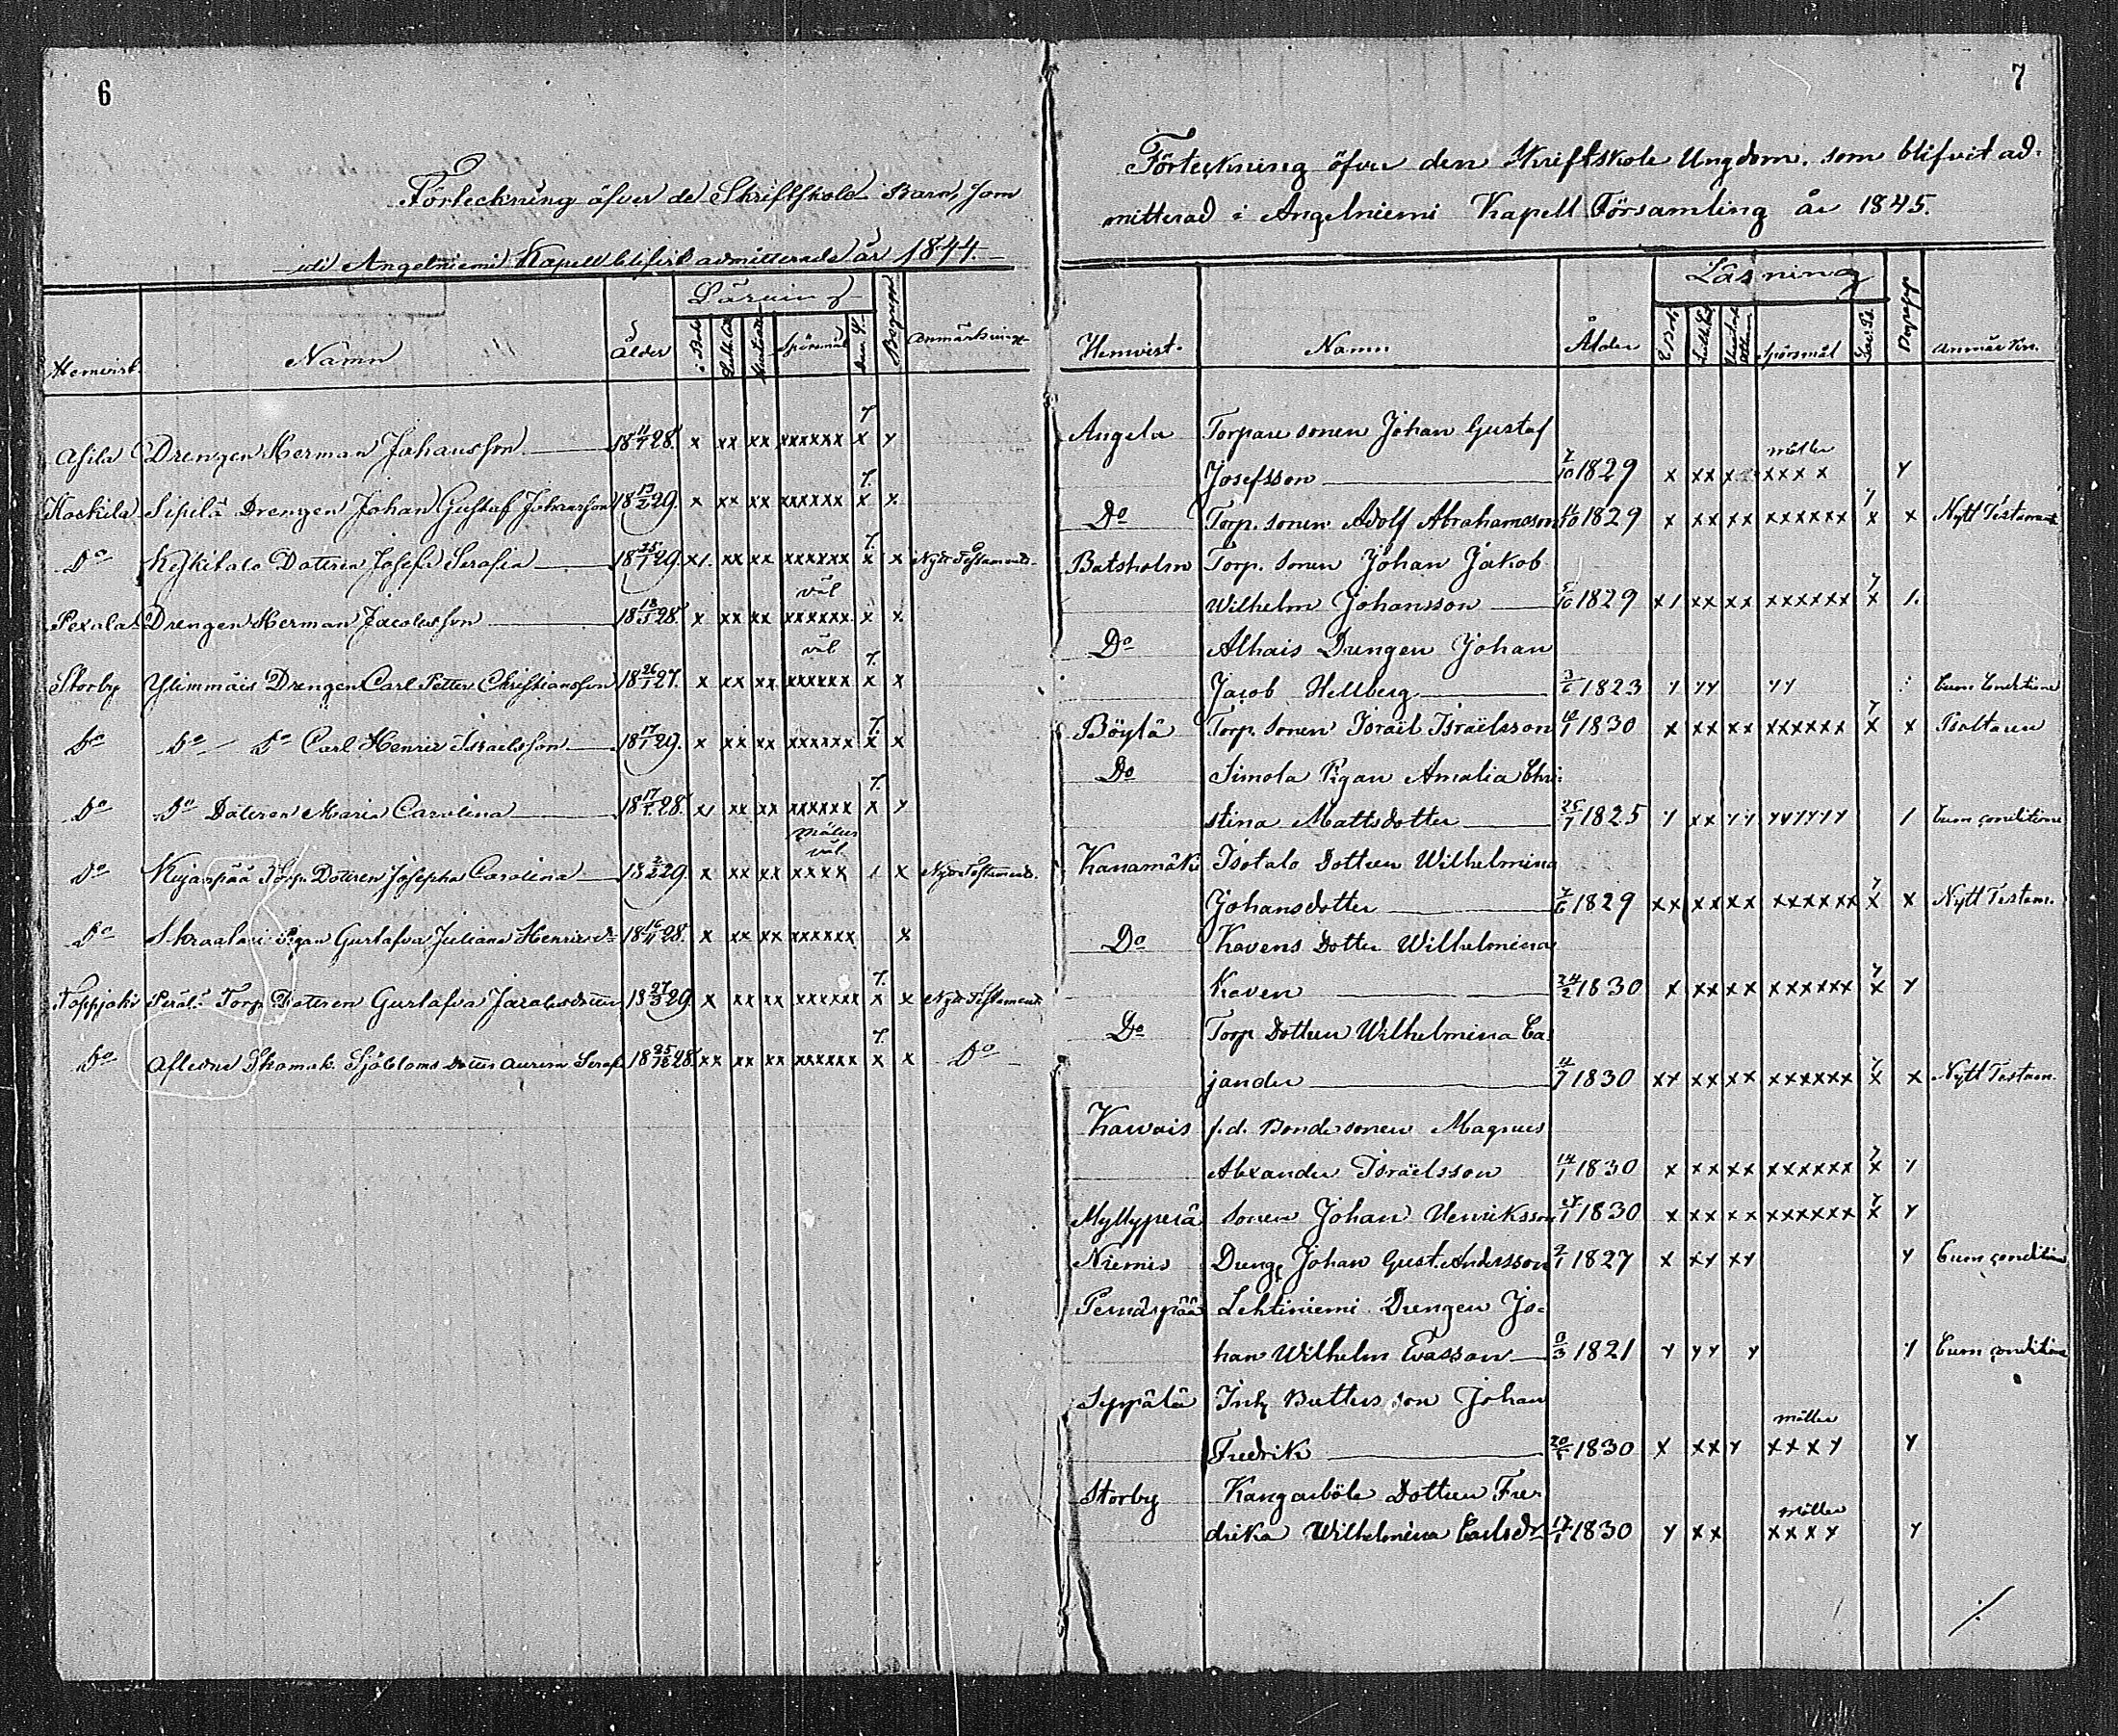 6
Förteckning öfver de Skriftskole Barn, som
uti Angelniemi Kapell blifvit admitterade år 1844.
Hemvist. Namn Ålder Läsning Begrepp Anmärkningr
i Bok Spörsmål
Asila Drengen Herman Johansson 18 11/7 28. x xx xx xxxxxx x x
Koskila Sipilä Drengen Johan Gustaf Johansson 18 13/2 29. x xx xx xxxxxx x x
Do Kejkitalo Dottren Josefa Serafia 18 25/1 29. x/. xx xx xxxxxx x x Nytt Testament.
väl
Pexala Drengen Herman Jacobsson 18 18/3 28. x xx xx xxxxxx x x
väl
Storby Ylimmäis Drengen Carl Petter Christiansson 18 26/1 27. x xx xx xxxxxx x x
Do Do Do Carl Henric Israelsson 18 17/1 29. x xx xx xxxxxx x x
Do Do Dottren Maria Carolina 18 17/5 28. x/ xx xx xxxxxx x x
väl
Do Torp. Dottren Josepha Carolina 18 2/2 29. x xx xx xxxx / x Nytt Testament.
Do Pigan Gustafva Juliana Henricsdr 18 16/11 28. x xx xx xxxxxx x
Toppjoki Perälä Torp. Dottren Gustafva Jacobsdotter 18 27/3 29. x xx xx xxxxxx x x Nytt Testament.
Do Afledne Skomak. Sjöbloms Dotter Aurora Seraf. 18 25/12 28. xx xx xx xxxxxx x x Do
7
Förteckning öfver den Skriftskole Ungdom, som blifvit ad-
mitterad i Angelniemi Kapell Församling år 1845.
Hemvist. Namn Ålder Läsning Begrepp Anmärkn.
Spörsmål
Angela Torpare sonen Johan Gustaf
Josefsson 7/10 1829 x xx x xxxx x
Do Torp. sonen Adolf Abrahamsson 11/10 1829 x xx xx xxxxxx x x Nytt Testament
Batsholm Torp. sonen Johan Jakob
Wilhelm Johansson 5/10 1829 x/ xx xx xxxxxx x /.
Do Alhais Drengen Johan
Jacob Hellberg 3/6 1823 x xx xx Cum Conditione
Böylä Torp. sonen Israël Israëlsson 10/1 1830 x xx xx xxxxxx x x Psaltaren
Do Simola Pigan Amalia Chri-
stina Mattsdotter 25/7 1825 x xx xx xxxxxx / Cum conditione
Kanamäki Isotalo Dottren Wilhelmina
Johansdotter 7/6 1829 xx xx xx xxxxxx x x Nytt Testam.
Do Kavens Dotter Wilhelmina
Kaven 24/2 1830 x xx xx xxxxxx x x
Do Torp Dottren Wilhelmina Ca-
jander 4/7 1830 xx xx xx xxxxxx x x Nytt Testam.
Kawais f.d. Bonde sonen Magnus
Alexander Israëlsson 14/1 1830 x xx xx xxxxxx x x
Myllyperä sonen Johan Henriksson 27/1 1830 x xx xx xxxxxx x x
Niemis Dreng. Johan Gust. Andersson 2/1 1827 x xx xx x Cum condition
Pernäspää Lehtiniemi Drengen Jo-
han Wilhelm Evasson 8/3 1821 x xx x x Cum condition
Seppälä Inh. Butters son Johan
Fredrik 20/5 1830 x xx x xxxx x
Storby Kangarböle Dottren Fre-
drika Wilhelmina Carlsdr 17/1 1830 x xx xxxx x